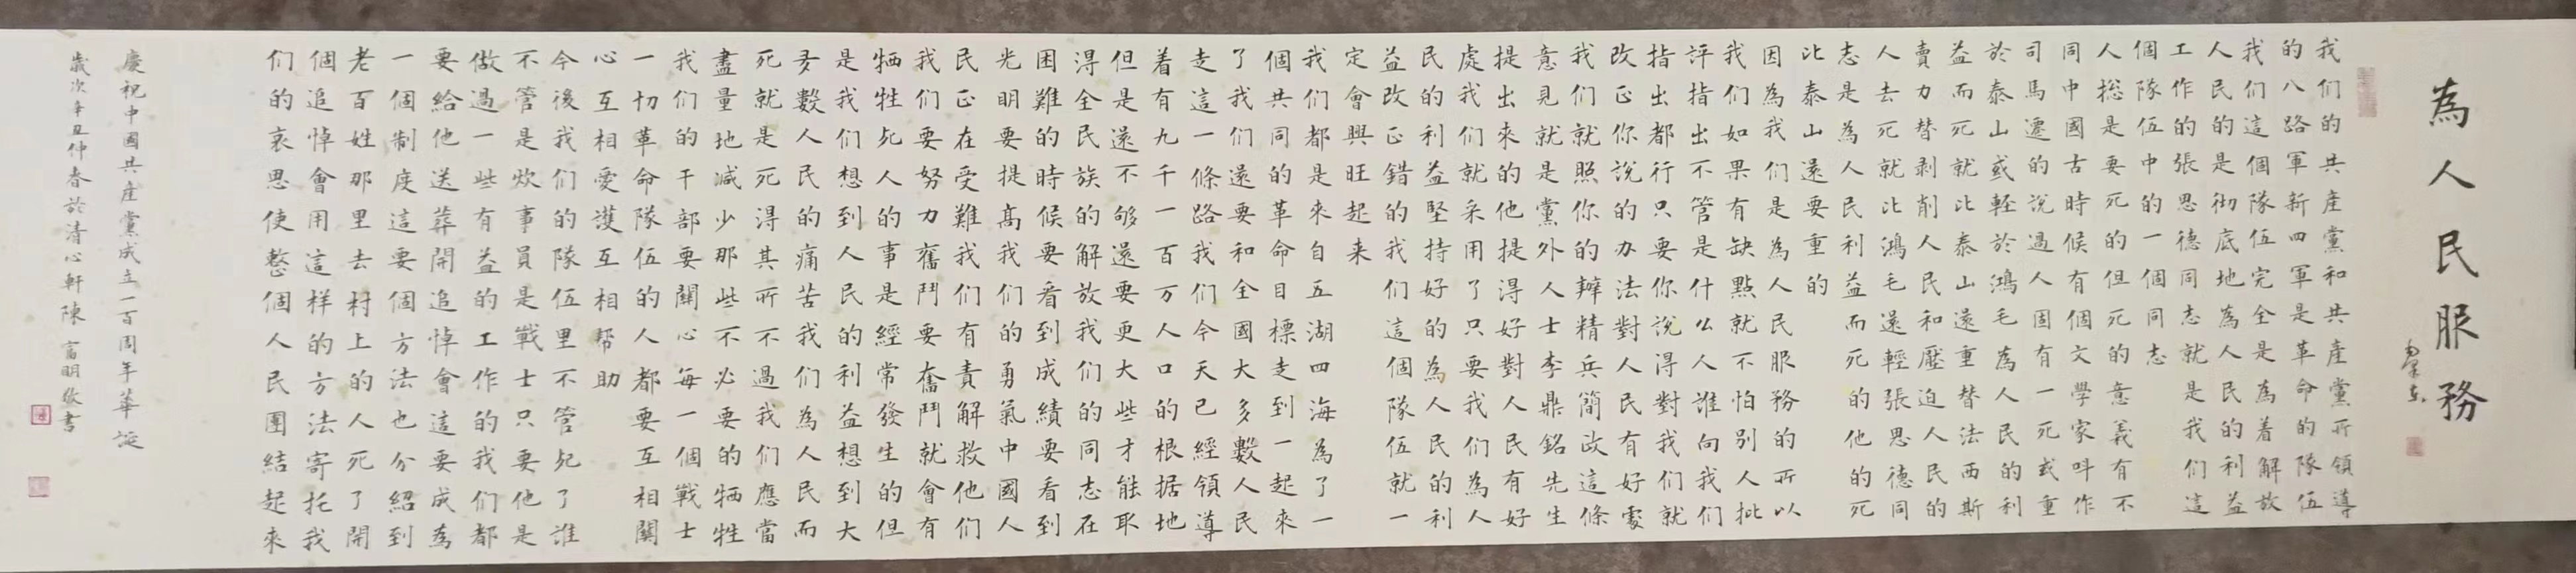 為人民服務
我们的共產黨和共產黨所領導
的八路軍新四軍是革命的隊伍
我们這個隊伍完全是為着解放
人民的是彻底地為人民的利益
工作的張思德同志就是我们這
個隊伍中的一個同志
人総是要死的但死的意義有不
同中國古時候有個文學家呌作
司馬遷的說過人固有一死或重
於泰山或輕於鴻毛為人民的利
益而死就比泰山還重替法西斯
賣力替剥削人民和壓迫人民的
人去死就比鴻毛還輕張思德同
志是為人民利益而死的他的死
比泰山還要重的
因為我们是為人民服務的所以
我们如果有缺點就不怕别人批
評指出不管是什么人谁向我们
指出都行只要你說得對我们就
改正你說的办法對人民有好處
我们就照你的辦精兵簡政這條
意見就是黨外人士李鼎銘先生
提出來的他提得好對人民有好
處我们就采用了只要我们為人
民的利益堅持好的為人民的利
益改正錯的我们這個隊伍就一
定會興旺起来
我们都是來自五湖四海為了一
個共同的革命目標走到一起來
了我们還要和全國大多數人民
走這一條路我们今天已經領導
着有九千一百万人口的根据地
但是還不够還要更大些才能取
得全民族的解放我们的同志在
困難的時候要看到成績要看到
光明要提高我们的勇氣中國人
民正在受難我们有責解救他们
我们要努力奮鬥要奮鬥就會有
牺牲死人的事是經常發生的但
是我们想到人民的利益想到大
多數人民的痛苦我们為人民而
死就是死得其所不過我们應當
盡量地減少那些不必要的牺牲
我们的干部要關心每一個戰士
一切革命隊伍的人都要互相關
心互相愛護互相帮助
今後我们的隊伍里不管死了谁
不管是炊事員是戰士只要他是
做過一些有益的工作的我们都
要給他送葬開追悼會這要成為
一個制度這要個方法也介紹到
老百姓那里去村上的人死了開
個追悼會用這样的方法寄托我
们的哀思使整個人民團結起來
慶祝中國共產黨成立一百周年華誕
歲次辛丑仲春於清心軒陳富明敬書